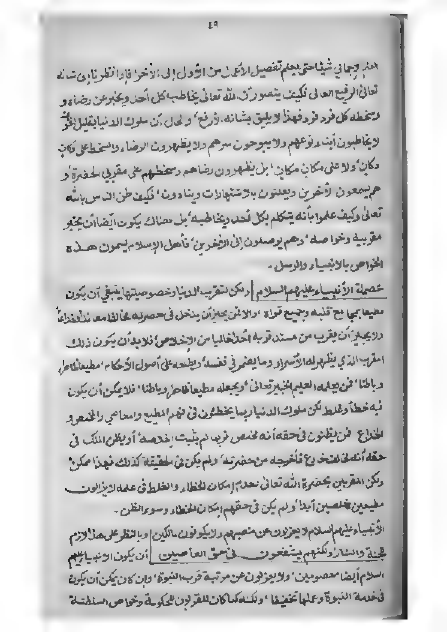 ٤٩
اهذر وجمالي شيئا حتى يعلم تفصيل الأعمال من الأول إلى الآخر، فإذا نظرنا إلى شانه
تعالى الرفيع العالى فكيف يتصور أن الله تعالى يخاطب كل أحد ويخبر عن رضاه و
سخطه كل فرد فرد فهذا لا يليق بشانه الأرفع، والحال أن ملوك الدنيا بقليل
لا يخاطبون أبناء نوعهم ولا يبوحون سرهم ولا يظهرون الرضاء والسخط على دكان
دكان ولا على مكان مكان، بل يظهرون رضاهم وسخطهم على مقربي الحضرة، و
هم يسمعون لآخرين ويعلنون بالاشتهارات وينادون، فكيف ظن الناس بالله
تعالى وكيف علموا بأنه يتكلم بكل أحد ويخاطبه، بل هناك يكون أيضا أن يخبر
مقربيه وخواصه، وهم يوصلون إلى الآخرين، فأهل الإسلام يسمون هذه
الخواص بالأنبياء والرسل.
عصمة الأنبياء عليهم السلام ولكن لتقرب الدنيا وخصوصيتها ينبغي أن يكون
مطيعا بجامع قلبه وجميع قواه، والا لن يجاز أن يدخل في حضرته مخالفا معاندا وخداعا
ولا يجاز أن يقرب من مسند قربه أحد خاليا من الإخلاص، فلا بد أن يكون ذلك
المقرب الذي يظهر له الأسرار وما يضمر في نفسه ويطلعه على أصول الأحكام، مطيعا ظاهرا
وباطنا، فمن يعلمه العليم الخبير تعالى، ويجعله مطيعا ظاهرا وباطنا، فلا يمكن أن يكون
فيه خطأ وغلط لكن ملوك الدنيا ربما يخطئون في فهم المطيع والعاصي والمخلص و
الخداع فمن يظنون في حقه أنه مخلص فربما لم يثبت إخلاصه، أو يظن الملك في
حقه أنه خداع فأخرجه من حضرته، ولم يكن في الحقيقة كذلك فهذا ممكن
ولكن المتقربين بحضرة الله تعالى لعدم إمكان الخطاء والغلط في علمه لا يزالون
مطيعين مخلصين أبدا، ولم يكن في حقهم إمكان الخطاء وسوء الظن.
الأنبياء عليهم السلام لا يعزلون عن منصبهم ولا يكونون مالكين وبالنظر على هذا لازم
الجنة والنار ولكنهم يشفعون في حق العاصين أن يكون الأنبياء عليهم
السلام أيضا معصومين، ولا يعزلون عن مرتبة قرب النبوة، وإن كان يمكن أن يكون
في خدمة النبوة وعملها تخفيفا، ولكنه كما كان للمقربون للحكومة وخواص السلطنة